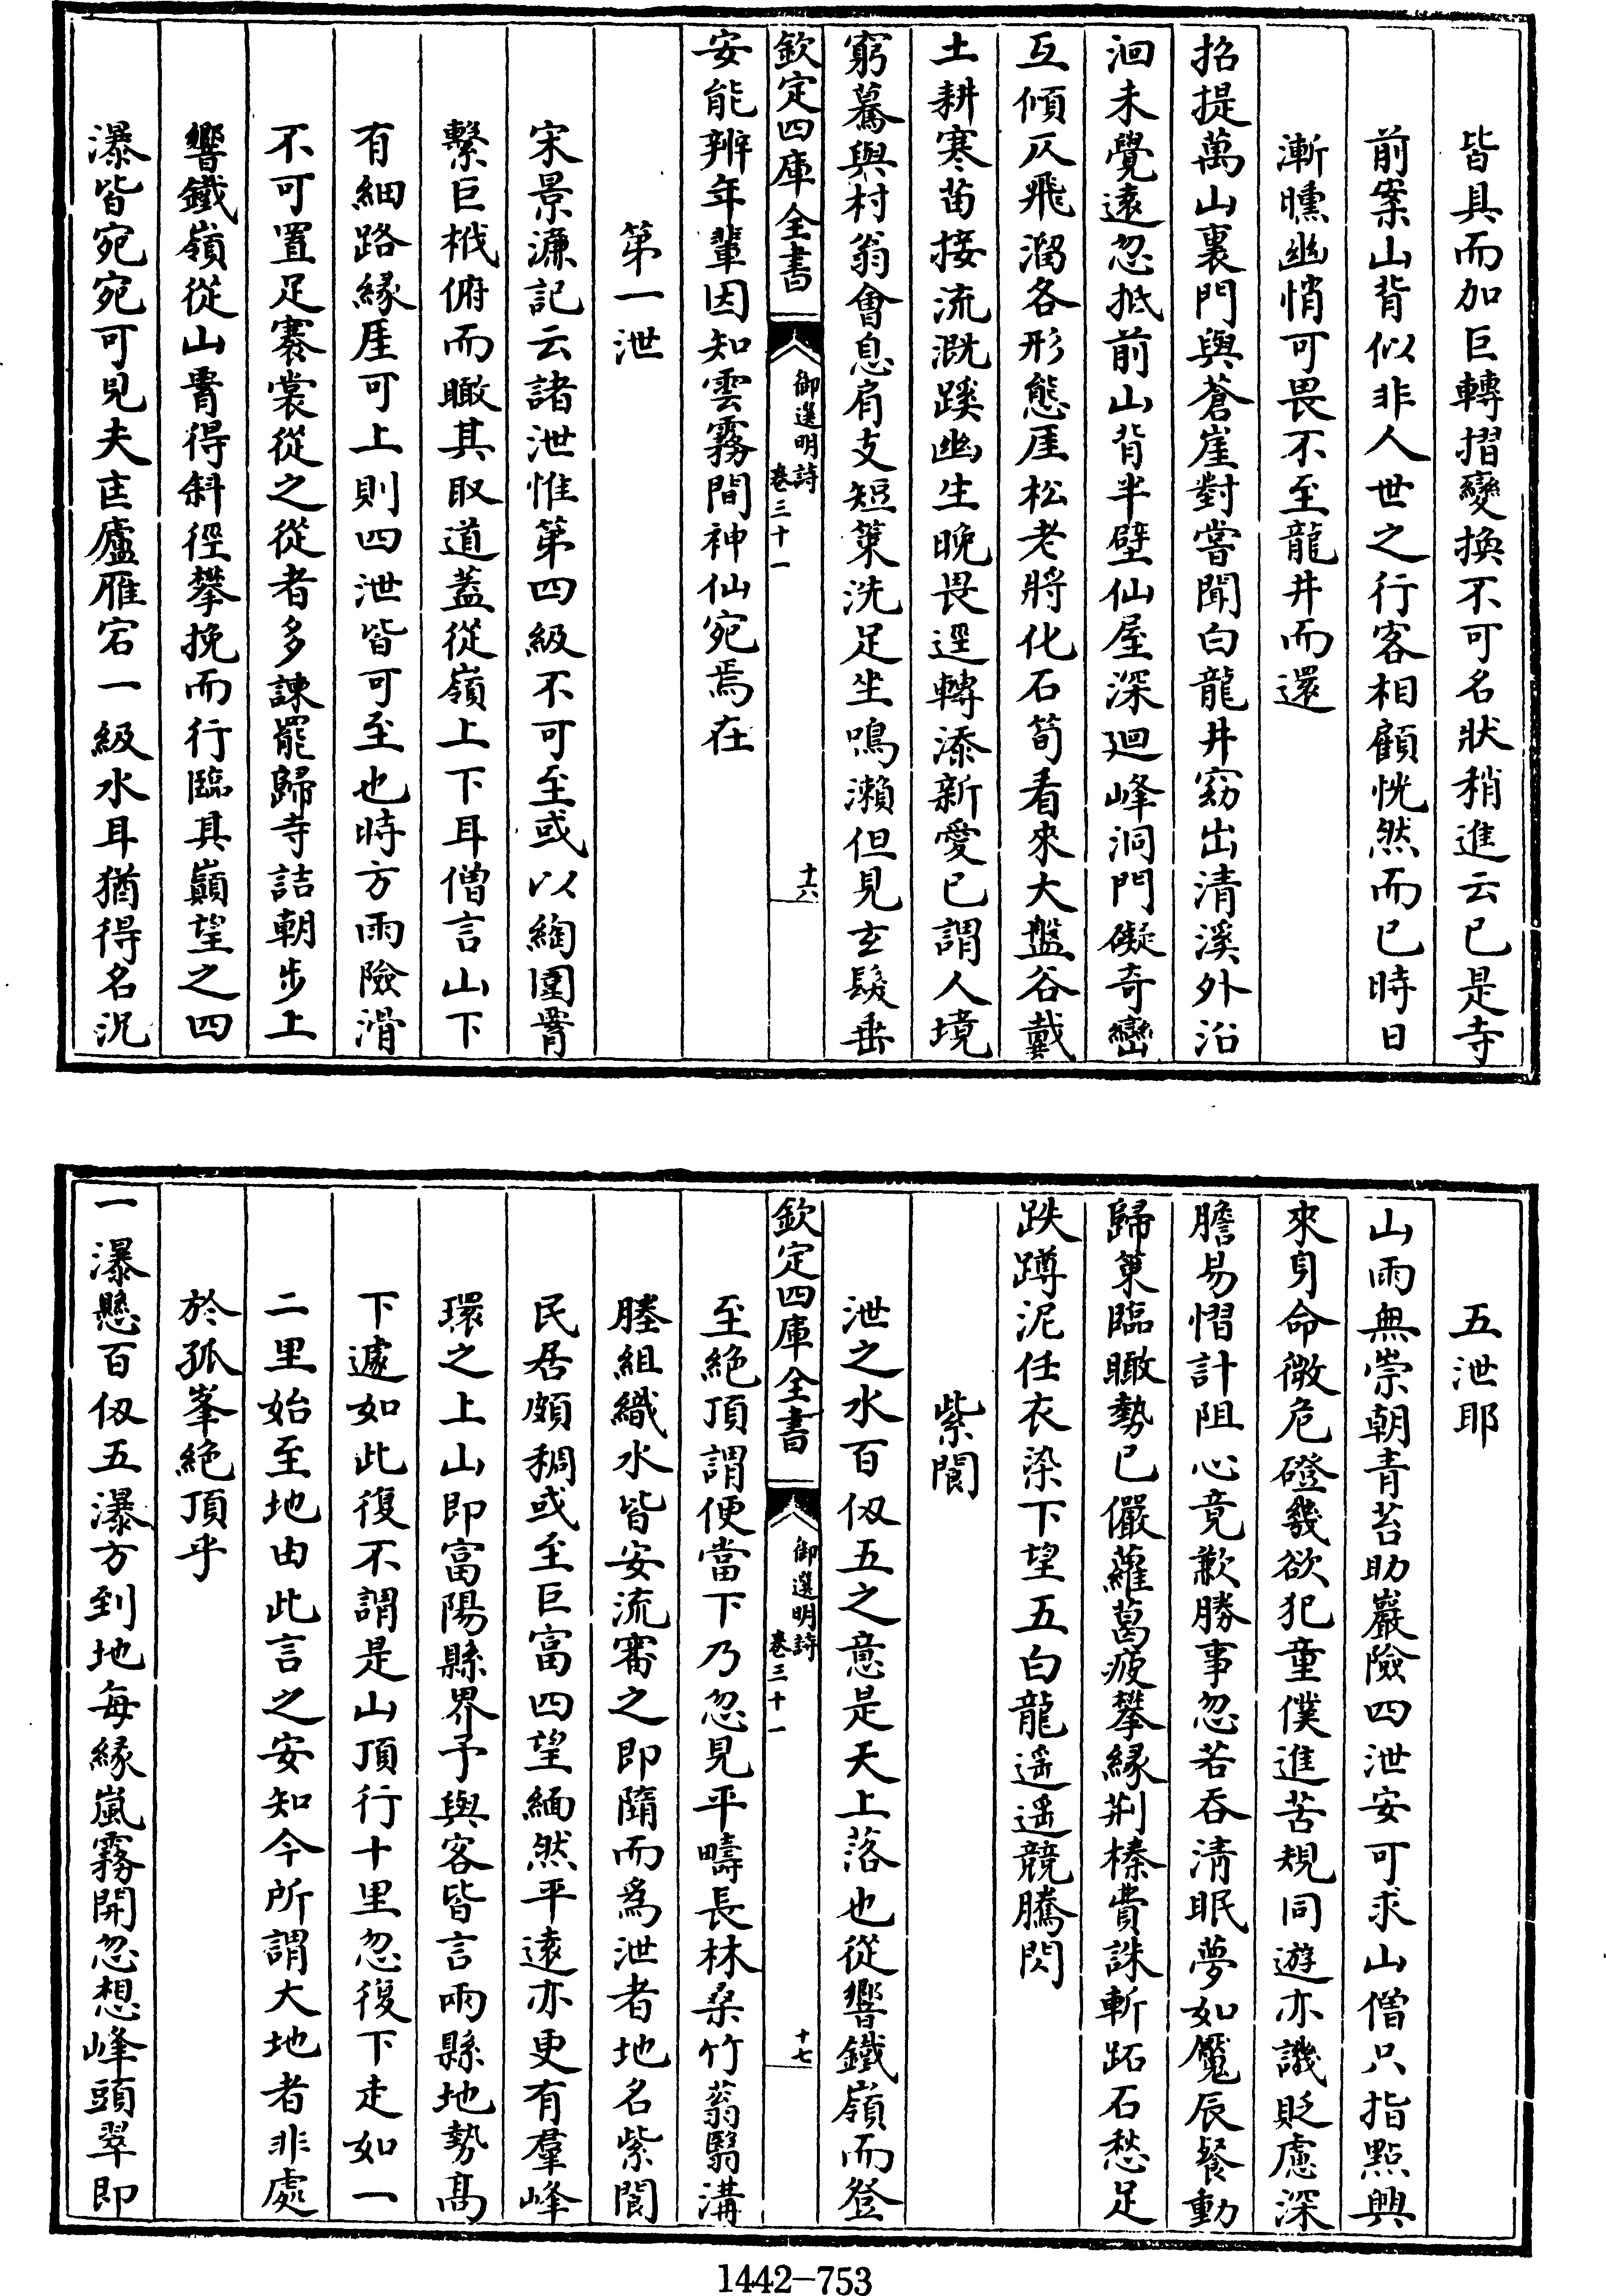 皆具而加巨轉摺變換不可名狀稍進云已是寺
前案山背似非人世之行客相顧恍然而已時日
漸曛幽悄可畏不至龍井而還
招提萬山裏門與蒼崖對嘗聞白龍井窈出清溪外沿
洄未覺遠忽抵前山背半壁仙屋深迴峰洞門礙奇巒
互傾仄飛溜各形態厓松老將化石筍看來大盤谷戴
土耕寒苗接流漑蹊幽生晚畏逕轉添新愛已謂人境
窮驀與村翁會息肩支短策洗足坐鳴瀨但見玄髮垂
欽定四庫全書
御選明詩
卷三十一
十六
安能辨年輩因知雲霧間神仙宛焉在
第一泄
宋景濂記云諸泄惟第四級不可至或以綯圍罥
繫巨栰俯而瞰其取道蓋從嶺上下耳僧言山下
有細路緣厓可上則四泄皆可至也時方雨險滑
不可置足褰裳從之從者多諫罷歸寺詰朝步上
響鐵嶺從山罥得斜徑攀挽而行臨其巔望之四
瀑皆宛宛可見夫匡廬雁宕一級水耳猶得名況
五泄耶
山雨無崇朝青苔助巖險四泄安可求山僧只指點興
來身命微危磴幾欲犯童僕進苦規同遊亦譏貶慮深
膽易慴計阻心竟歉勝事忽若吞清眠夢如魘辰餐動
歸策臨瞰勢已儼蘿葛疲攀緣荆榛費誅斬跖石愁足
跌蹲泥任衣染下望五白龍遥遥競騰閃
紫閬
泄之水百仭五之意是天上落也從響鐵嶺而登
欽定四庫全書
御選明詩
卷三十一
十七
至絶頂謂便當下乃忽見平疇長林桑竹蓊翳溝
塍組織水皆安流審之即隋而爲泄者地名紫閬
民居頗稠或至巨富四望緬然平遠亦更有羣峰
環之上山即富陽縣界予與客皆言兩縣地勢髙
下遽如此復不謂是山頂行十里忽復下走如一
二里始至地由此言之安知今所謂大地者非處
於孤峯絶頂乎
一瀑懸百仭五瀑方到地每緣嵐霧開忽想峰頭翠即
1442—753